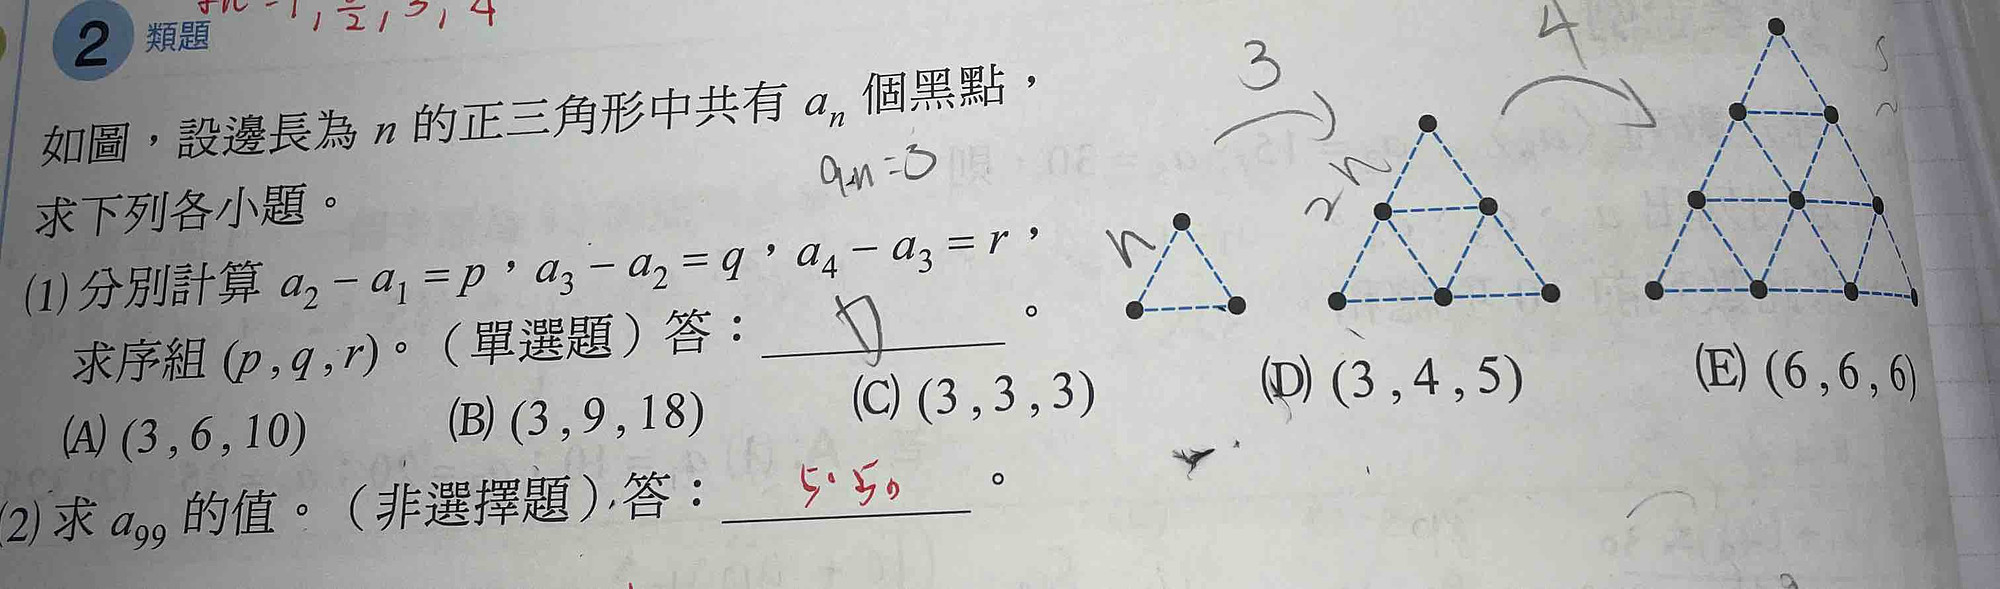 2 類題
如圖，設邊長為 n 的正三角形中共有 aₙ 個黑點，
an=3
求下列各小題。
(1) 分別計算 a₂ − a₁ = p，a₃ − a₂ = q，a₄ − a₃ = r，
求序組 (p , q , r)。（單選題）答：D。
(A) (3 , 6 , 10)
(B) (3 , 9 , 18)
(C) (3 , 3 , 3)
(D) (3 , 4 , 5)
(E) (6 , 6 , 6)
(2) 求 a₉₉ 的值。（非選擇題）答：5050。
3
4
n
2n